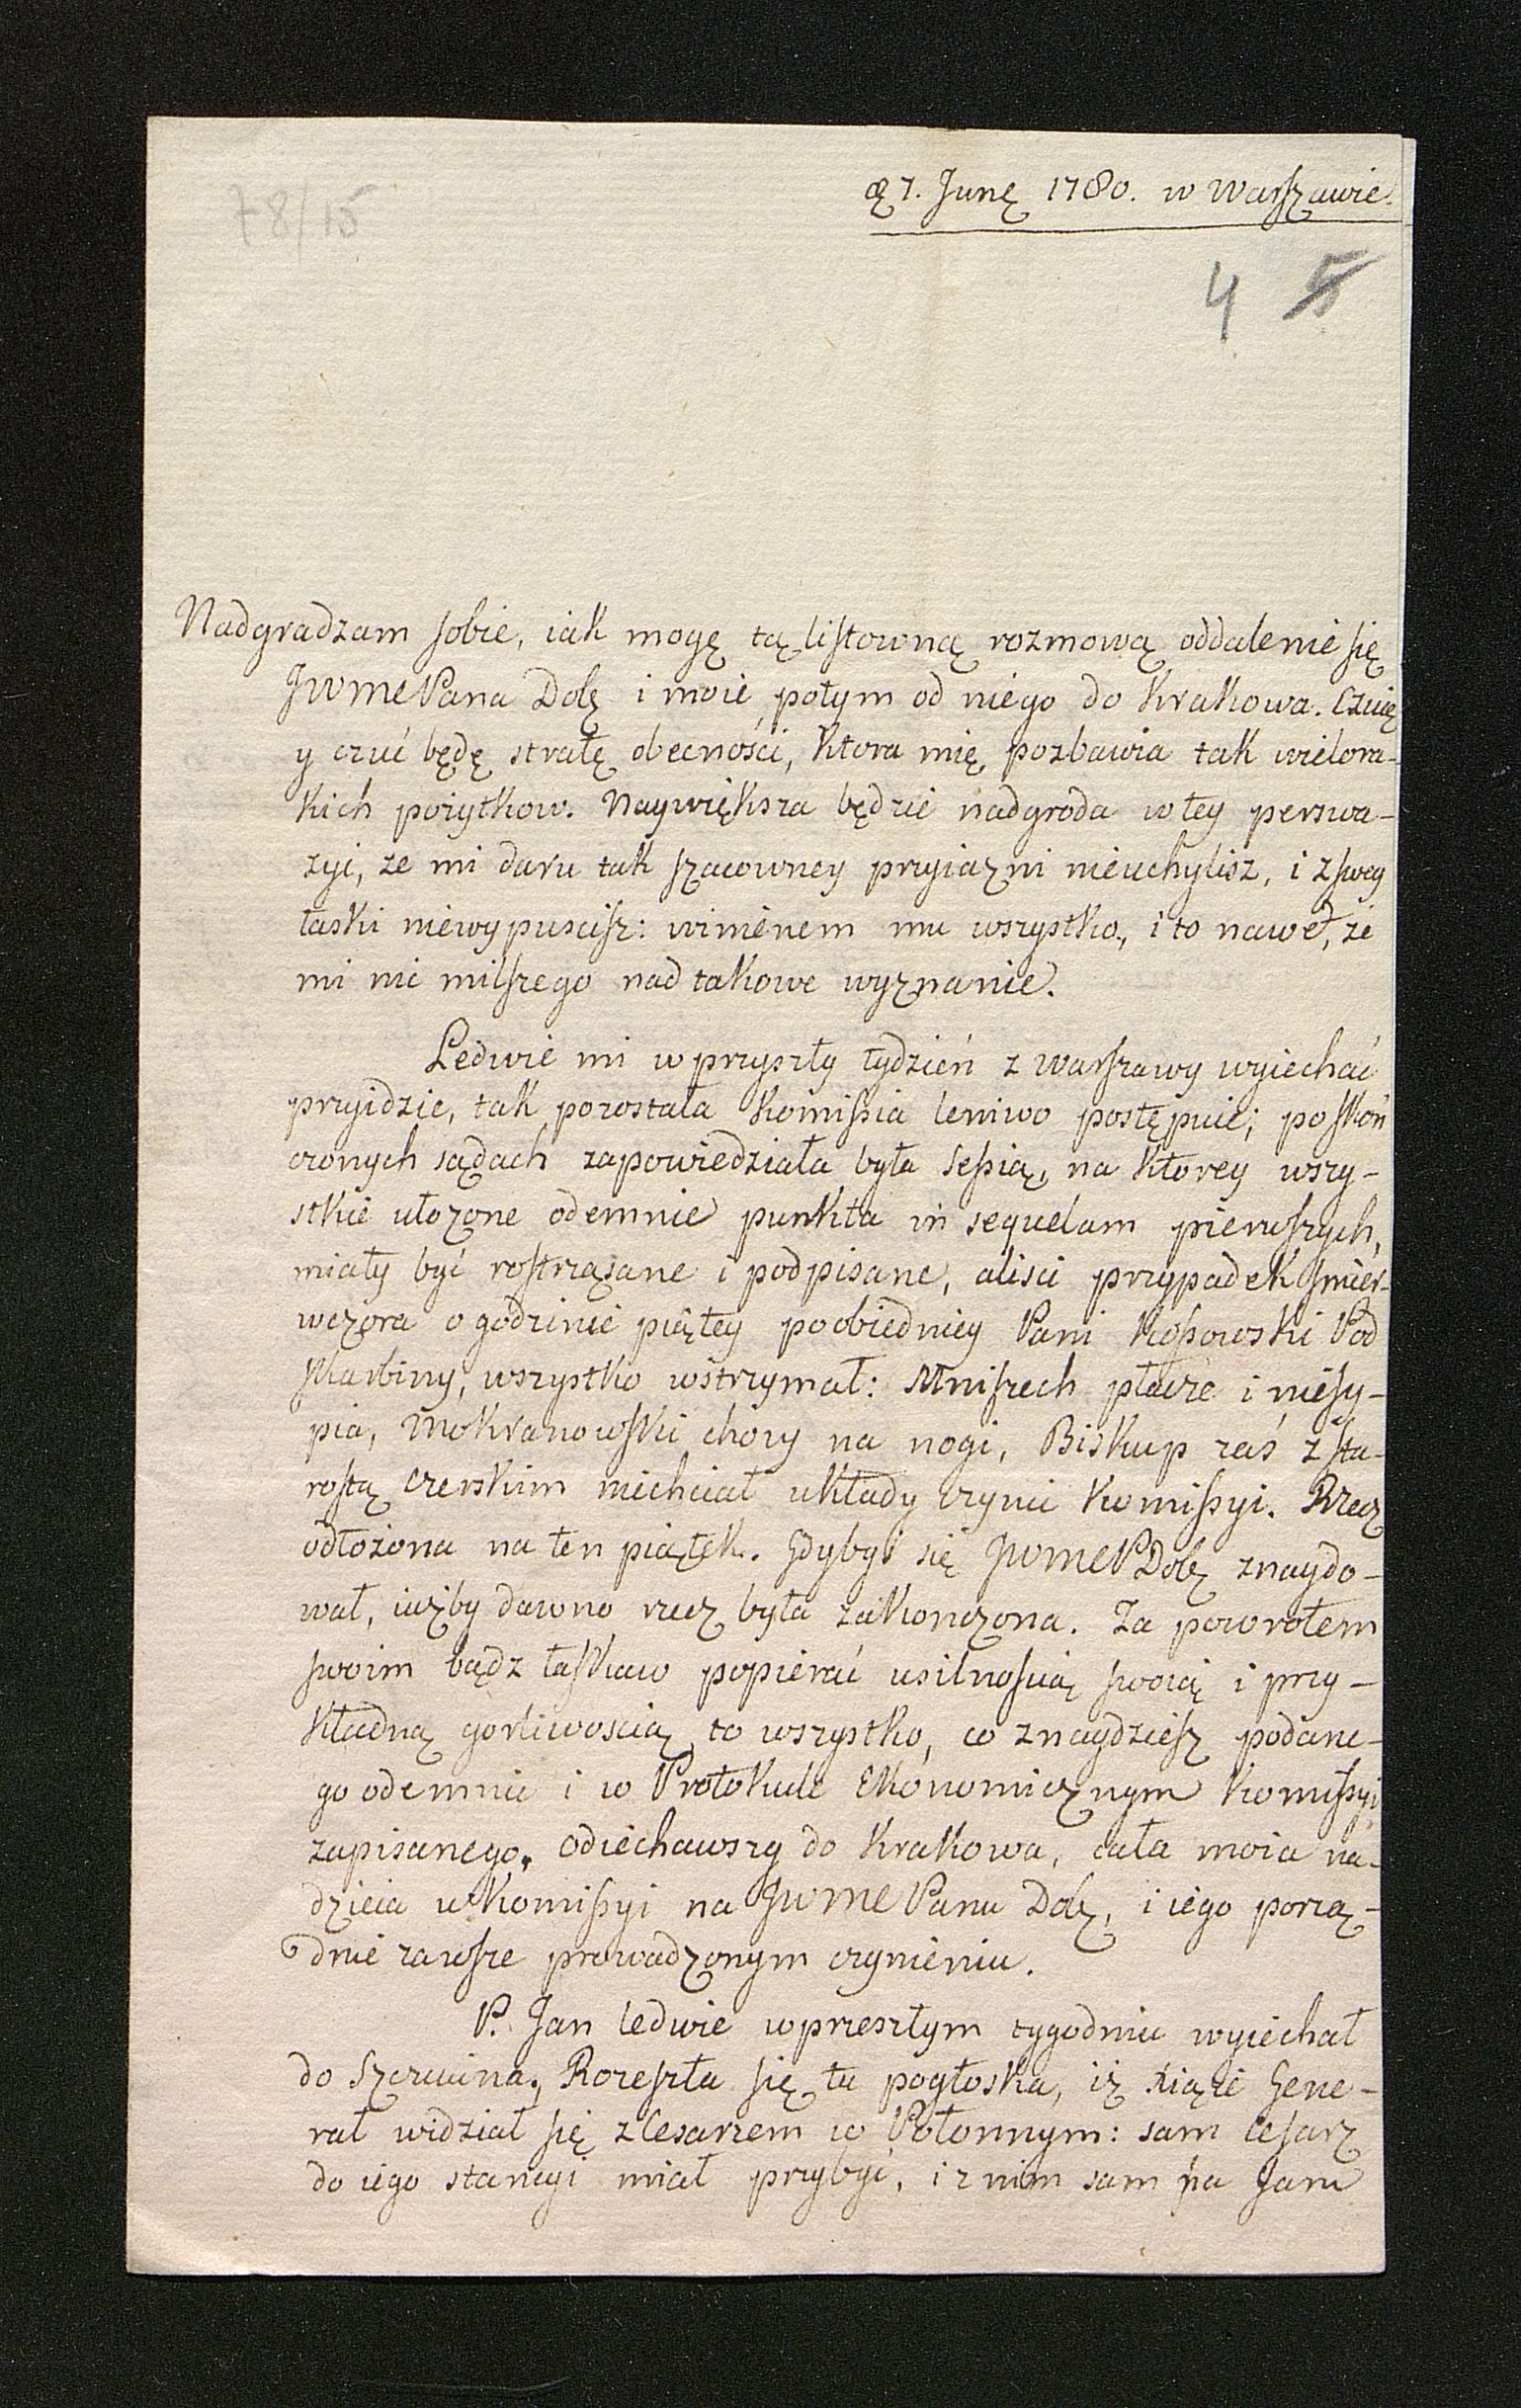 78/15
d 7. Junę 1780. w Warszawie.
4 5
Nadgradzam sobie, iak mogę tą listowną rozmową oddalenie się
JWmePana Dobę i moie potym od niego do Krakowa. Czuię
y czuć będę stratę obecności, ktora mię pozbawia tak wielora-
kich pożytkow. Naywiększa będzie nadgroda w tey perswa-
zyi, ze mi daru tak szacowney przyiazni nieuchylisz, i z swey
łaski niewypuscisz: winienem mu wszystko, i to nawet, że
mi nic milszego nad takowe wyznanie.
Ledwie mi w przyszły tydzień z Warszawy wyiechać
przyidzie, tak pozostała Komissia leniwo postępuie; po skoń
czonych sądach zapowiedziała była Sessią, na ktorey wszy-
stkie ułozone odemnie punkta in sequelam pierwszych,
miały być rostrząsane i podpisane, alisci przypadek smier-
wczora o godzinie piątey poobiedniey Pani Kossowski Pod
skarbiny, wszystko wstrzymał: Mniszech płacze i niesy-
pia, Mokranowski chory na nogi, Biskup zaś z sta-
rostą Czerskim niechciał układy czynić Komissyi. Rzecz
odłożona na ten piątek. Gdybyś się JWmePDobę znaydo-
wał, iużby dawno rzecz była zakonczona. Za powrotem
swoim bądz łaskaw popierać usilnoscią swoią i przy-
kładną gorliwoscią to wszystko, co znaydziesz podane-
go odemnie i w Protokule Ekonomicznym Komissyi
zapisanego. Odiechawszy do Krakowa, cała moia na-
dzieia w Komissyi na JWmePanu Dobę, i iego porzą-
dnie zawsze prowadzonym czynieniu.
P. Jan ledwie w przeszłym tygodniu wyiechał
do Szczuczina. Rozeszła się tu pogłoska, iż Xiąże Gene-
rał widział się z Cesarzem w Połonnym: sam Cesarz
do iego stancyi miał przybyć, i z nim sam na sam